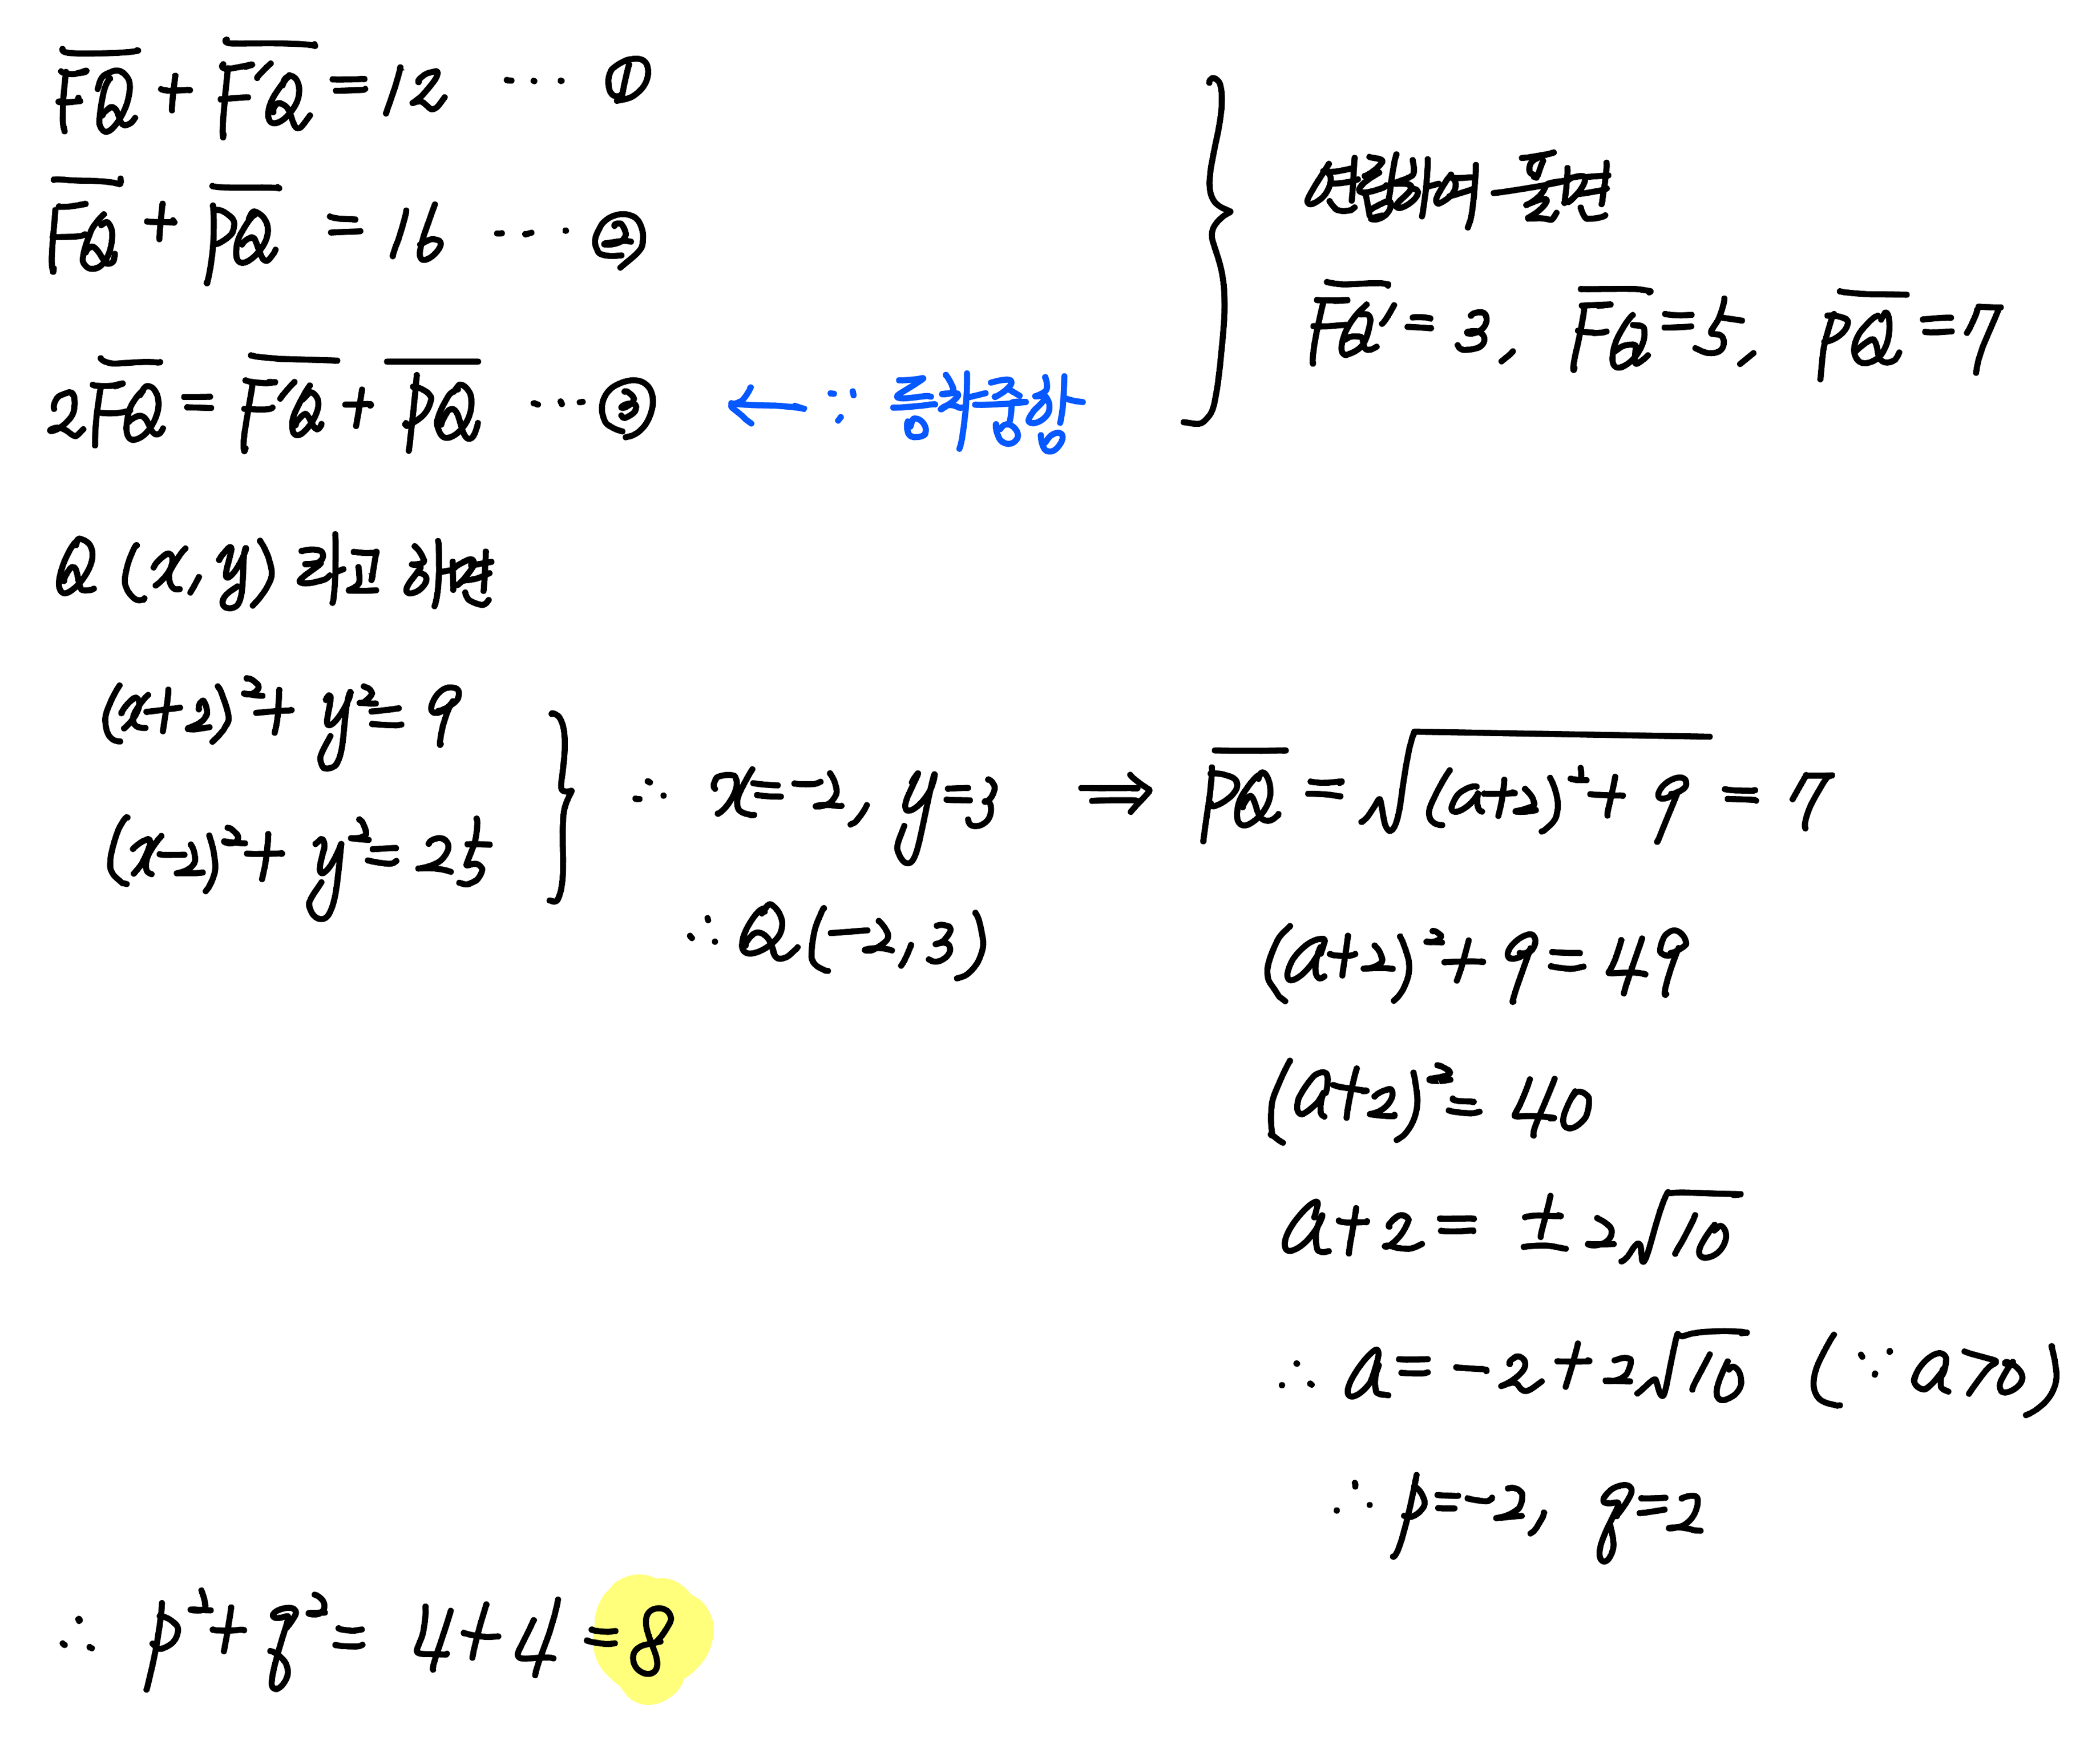 F̅Q̅ + F̅'̅Q̅ = 12 ⋯ ①
F̅Q̅ + P̅Q̅ = 16 ⋯ ②
2F̅Q̅ = F̅'̅Q̅ + P̅Q̅ ⋯ ③ ← ∵ 등차중항
연립해서 풀면
F̅Q̅' = 3, F̅Q̅ = 5, P̅Q̅ = 7
Q (x, y) 라고 하면
(x+2)² + y² = 9
(x-2)² + y² = 25
∴ x = -2, y = 3 ⇒ P̅Q̅ = √((a+2)² + 9) = 7
∴ Q (-2, 3)
(a+2)² + 9 = 49
(a+2)² = 40
a+2 = ±2√10
∴ a = -2 + 2√10 (∵ a>0)
∴ p = -2, q = 2
∴ p² + q² = 4+4 = 8